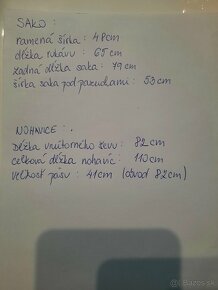 SAKO :
ramená šírka : 48cm
dĺžka rukávu : 65 cm
zadná dĺžka saka : 79 cm
šírka saka pod pazuchami : 53 cm
NOHAVICE : .
Dĺžka vnútorného švu : 82 cm
celková dĺžka nohavíc : 110 cm
veľkosť pásu : 41cm (obvod 82cm)
© Bazos.sk